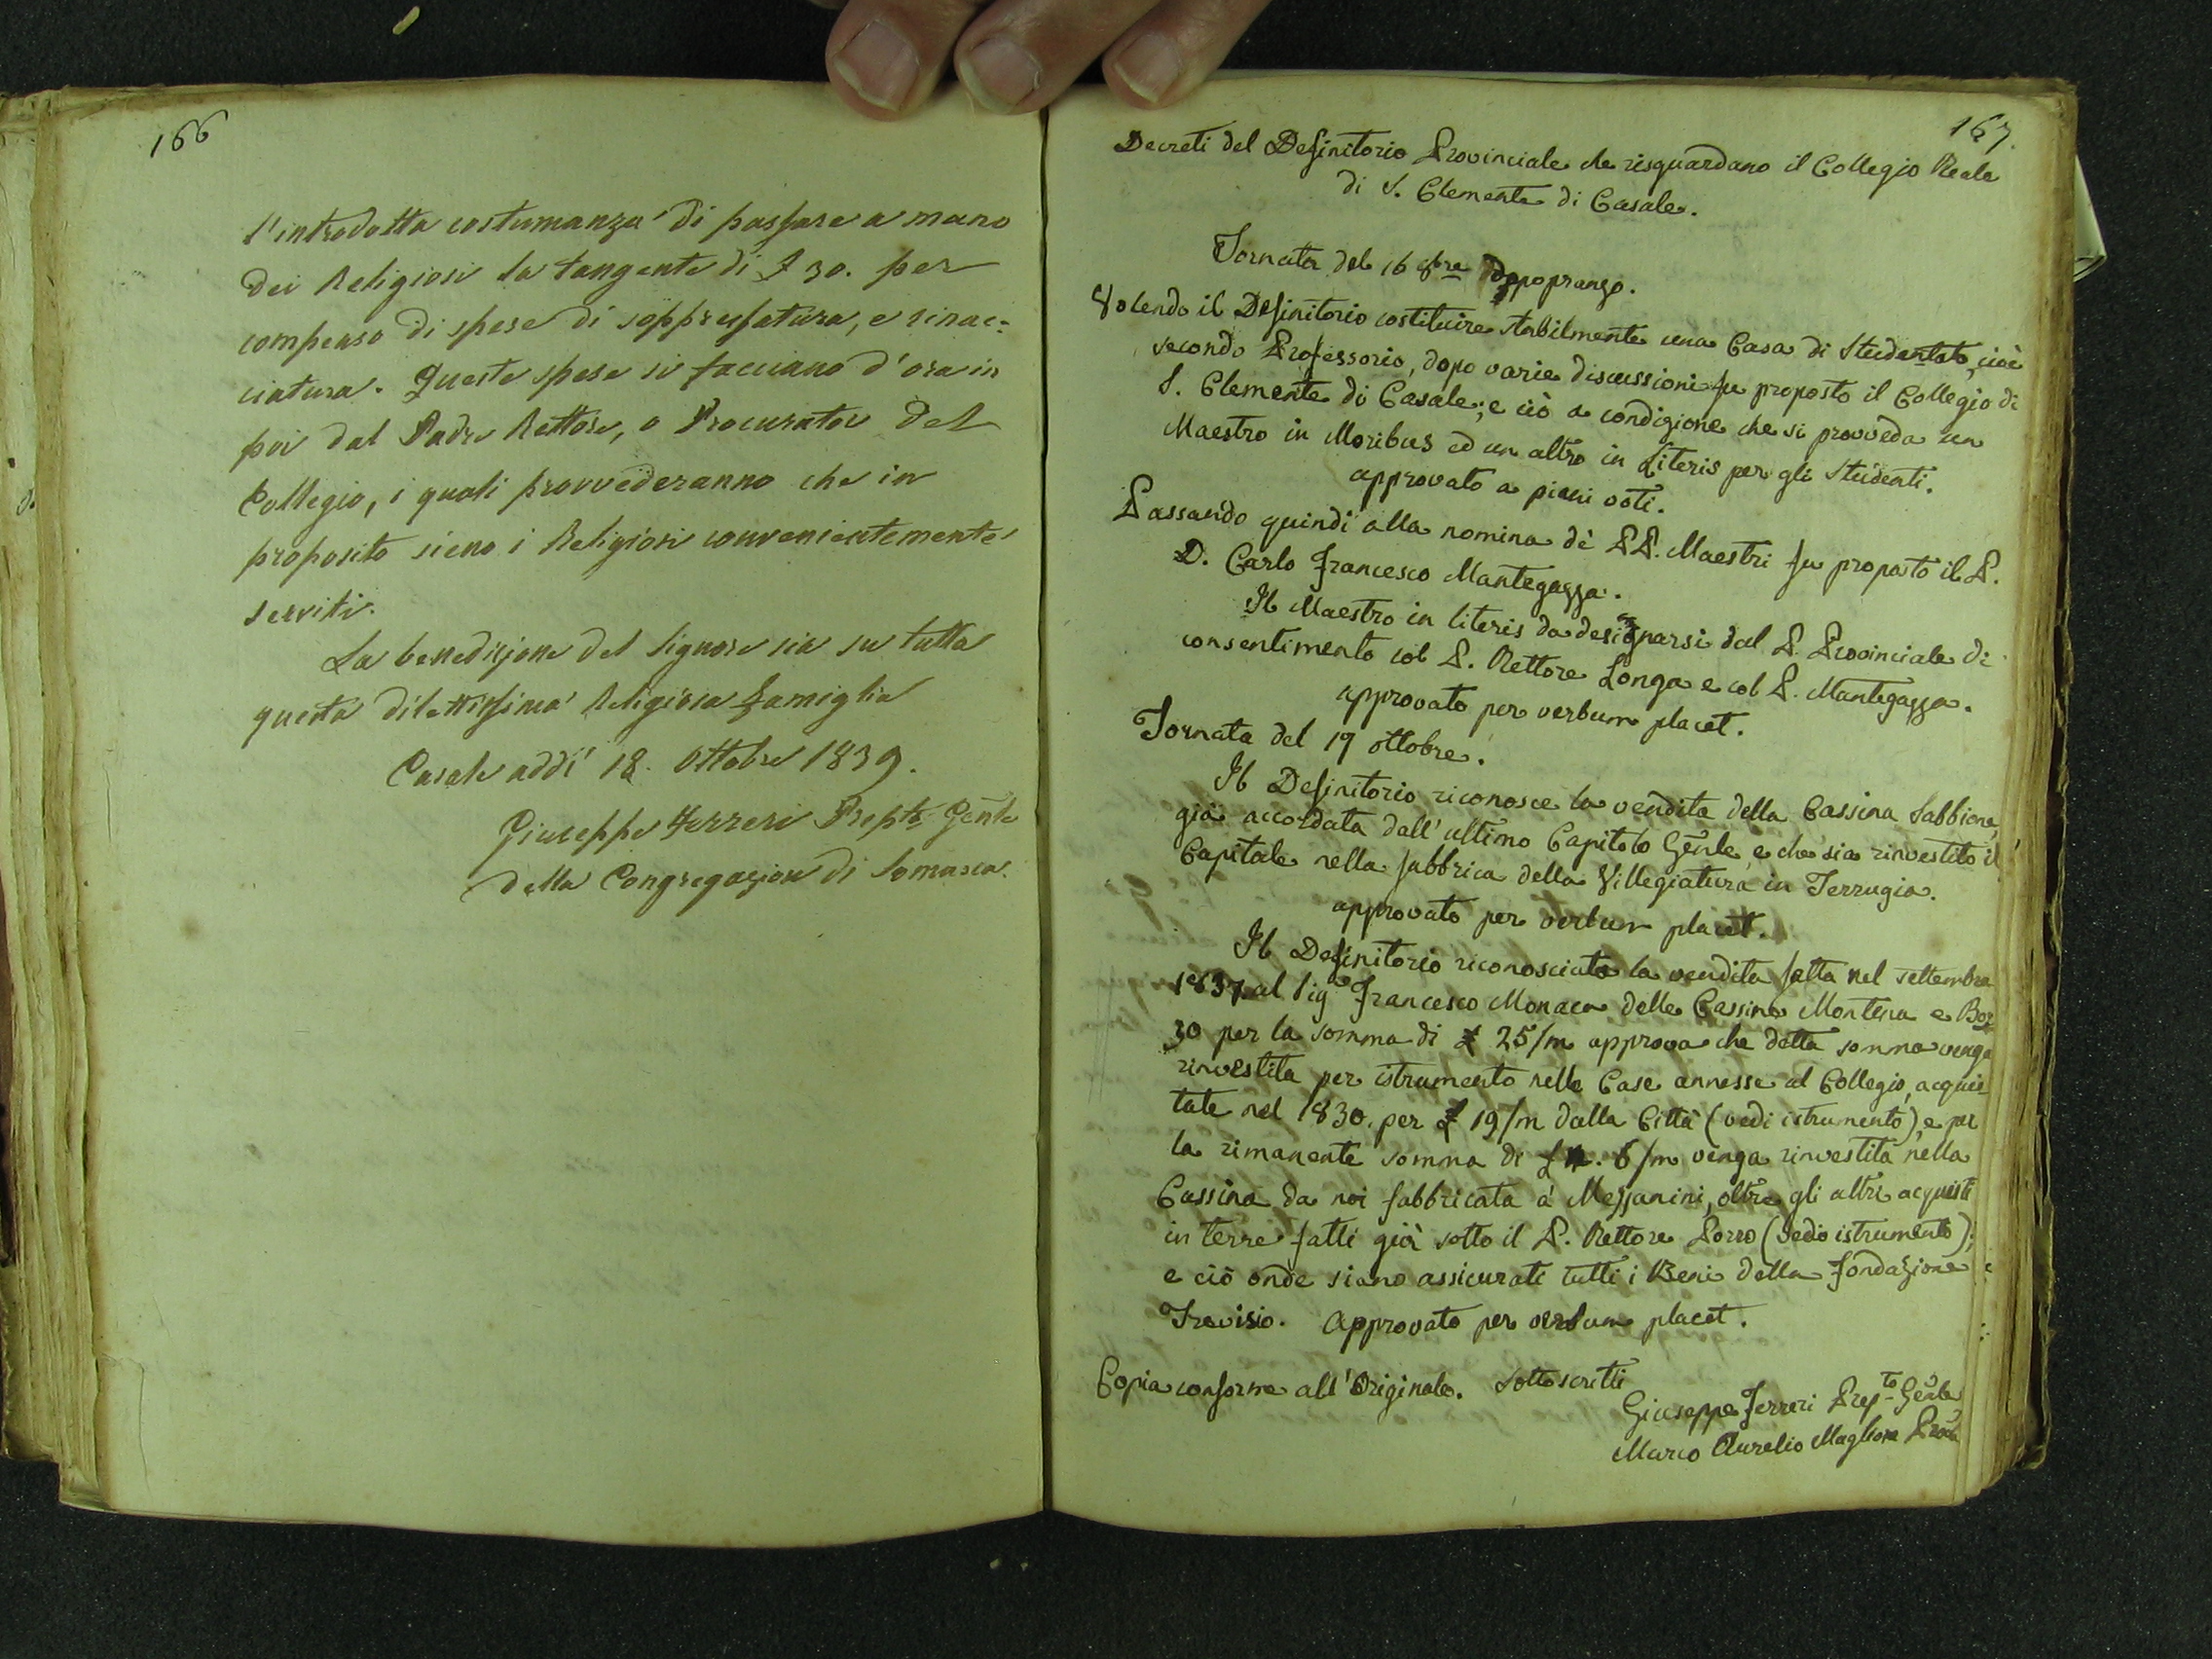 166
l'introdotta costumanza di passare a mano
dei Religiosi la tangente di £ 30. per
compenso di spese di soppressatura, e rinac=
ciatura. Queste spese si facciano d'ora in
poi dal Padre Rettore, o Procurator del
Collegio, i quali provvederanno che in
proposito sieno i Religiosi convenientemente
serviti.
La benedizione del Signore sia su tutta
questa dilettissima Religiosa Famiglia
Casale addì 18. Ottobre 1839.
Giuseppe Ferreri Prepto Genle
della Congregazione di Somasca.
167.
Decreti del Definitorio Provinciale che risguardano il Collegio Reale
di S. Clemente di Casale.
Tornata del 16 8bre dopopranzo.
Volendo il Definitorio costituire stabilmente una Casa di Studentato, cioè
secondo Professorio, dopo varie discussioni fu proposto il Collegio di
S. Clemente di Casale; e ciò a condizione che si provveda un
Maestro in Moribus ed un altro in Literis per gli Studenti.
approvato a pieni voti.
Passando quindi alla nomina dè PP. Maestri fu proposto il P.
D. Carlo Francesco Mantegazza.
Il Maestro in literis da designarsi dal P. Provinciale di
consentimento col P. Rettore Longa e col P. Mantegazza.
approvato per verbum placet.
Tornata del 19 ottobre.
Il Definitorio riconosce la vendita della Cassina Sabbione,
già accordata dall'ultimo Capitolo Genle, e che sia rinvestito il
Capitale nella fabbrica della Villegiatura in Terrugia.
approvato per verbum placet.
Il Definitorio riconosciuta la vendita fatta nel settembre
1837 al Sigr Francesco Monaca delle Cassine Montesa e Boz
zo per la somma di £ 25/m approva che detta somma venga
rinvestita per istrumento nelle Case annesse al Collegio, acquis
tate nel 1830. per £ 19/m dalla Città (vedi istrumento), e per
la rimanente somma di £ n. 6/m venga rinvestita nella
Cassina da noi fabbricata a' Mezzanini, oltre gli altri acquisti
in terre fatti già sotto il P. Rettore Porro (vedi istrumento);
e ciò onde siano assicurati tutti i Beni della Fondazione
Trevisio. Approvato per verbum placet.
Copia conforme all'Originale. Sottoscritti
Giuseppe Ferreri Prepto Genle
Marco Aurelio Maglione